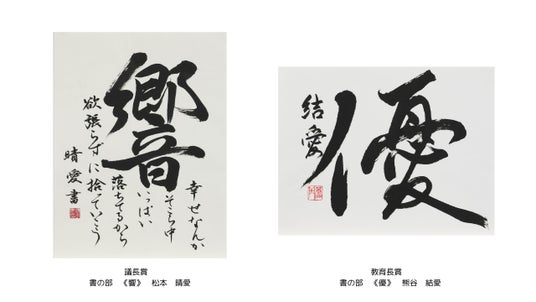 響
幸せなんか
そこら中
いっぱい
落ちてるから
欲張らずに拾っていこう
晴愛書
議長賞
書の部　《響》　松本　晴愛
優
結愛
教育長賞
書の部　《優》　熊谷　結愛